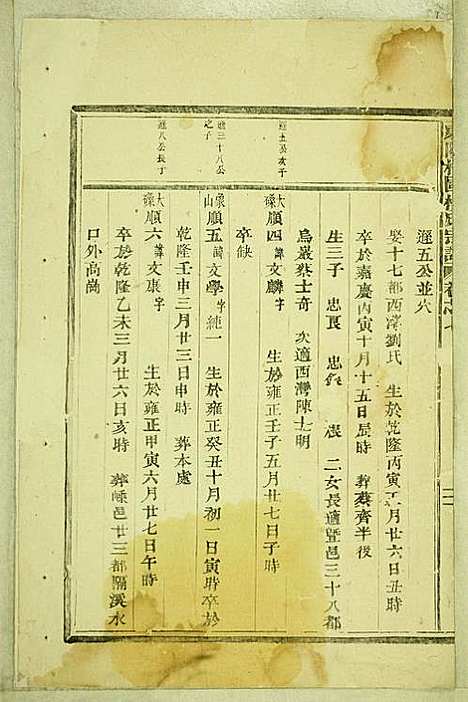 遜五公並穴
娶十七都西溪劉氏 生於乾隆丙寅 月廿六日丑時
卒於嘉慶丙寅十月十五日辰時 葬蔡齊半後
生三子 忠良 忠 根 二女長適暨邑三十八都
烏巖蔡士奇 次適西灣陳士明
遜五公次子
大燦 順四 諱文麟 字 生於雍正壬子五月廿七日子時
卒缺
遜三十八公之子
象山 順五 諱文學 字純一 生於雍正癸丑十月初一日寅時卒於
乾隆壬申三月廿三日申時 葬本處
遜八公長丁
大燦 順六 諱文康 字 生於雍正甲寅六月廿七日午時
卒於乾隆乙未三月廿六日亥時 葬嵊邑廿三都隔溪水
口外高崗